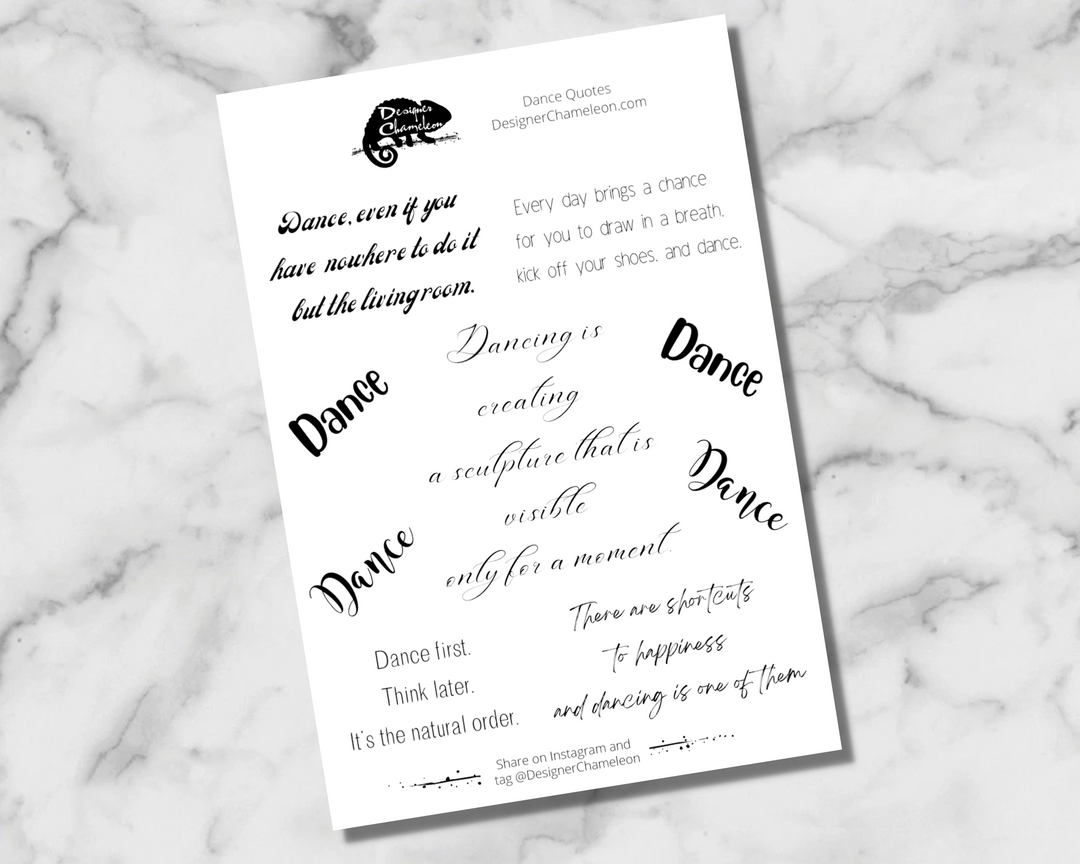 Designer
Chameleon
Dance Quotes
DesignerChameleon.com
Dance, even if you
have nowhere to do it
but the living room.
Every day brings a chance
for you to draw in a breath,
kick off your shoes, and dance.
Dancing is
creating
a sculpture that is
visible
only for a moment.
Dance
Dance
Dance
Dance
Dance first.
Think later.
It's the natural order.
There are shortcuts
to happiness
and dancing is one of them
Share on Instagram and
tag @DesignerChameleon